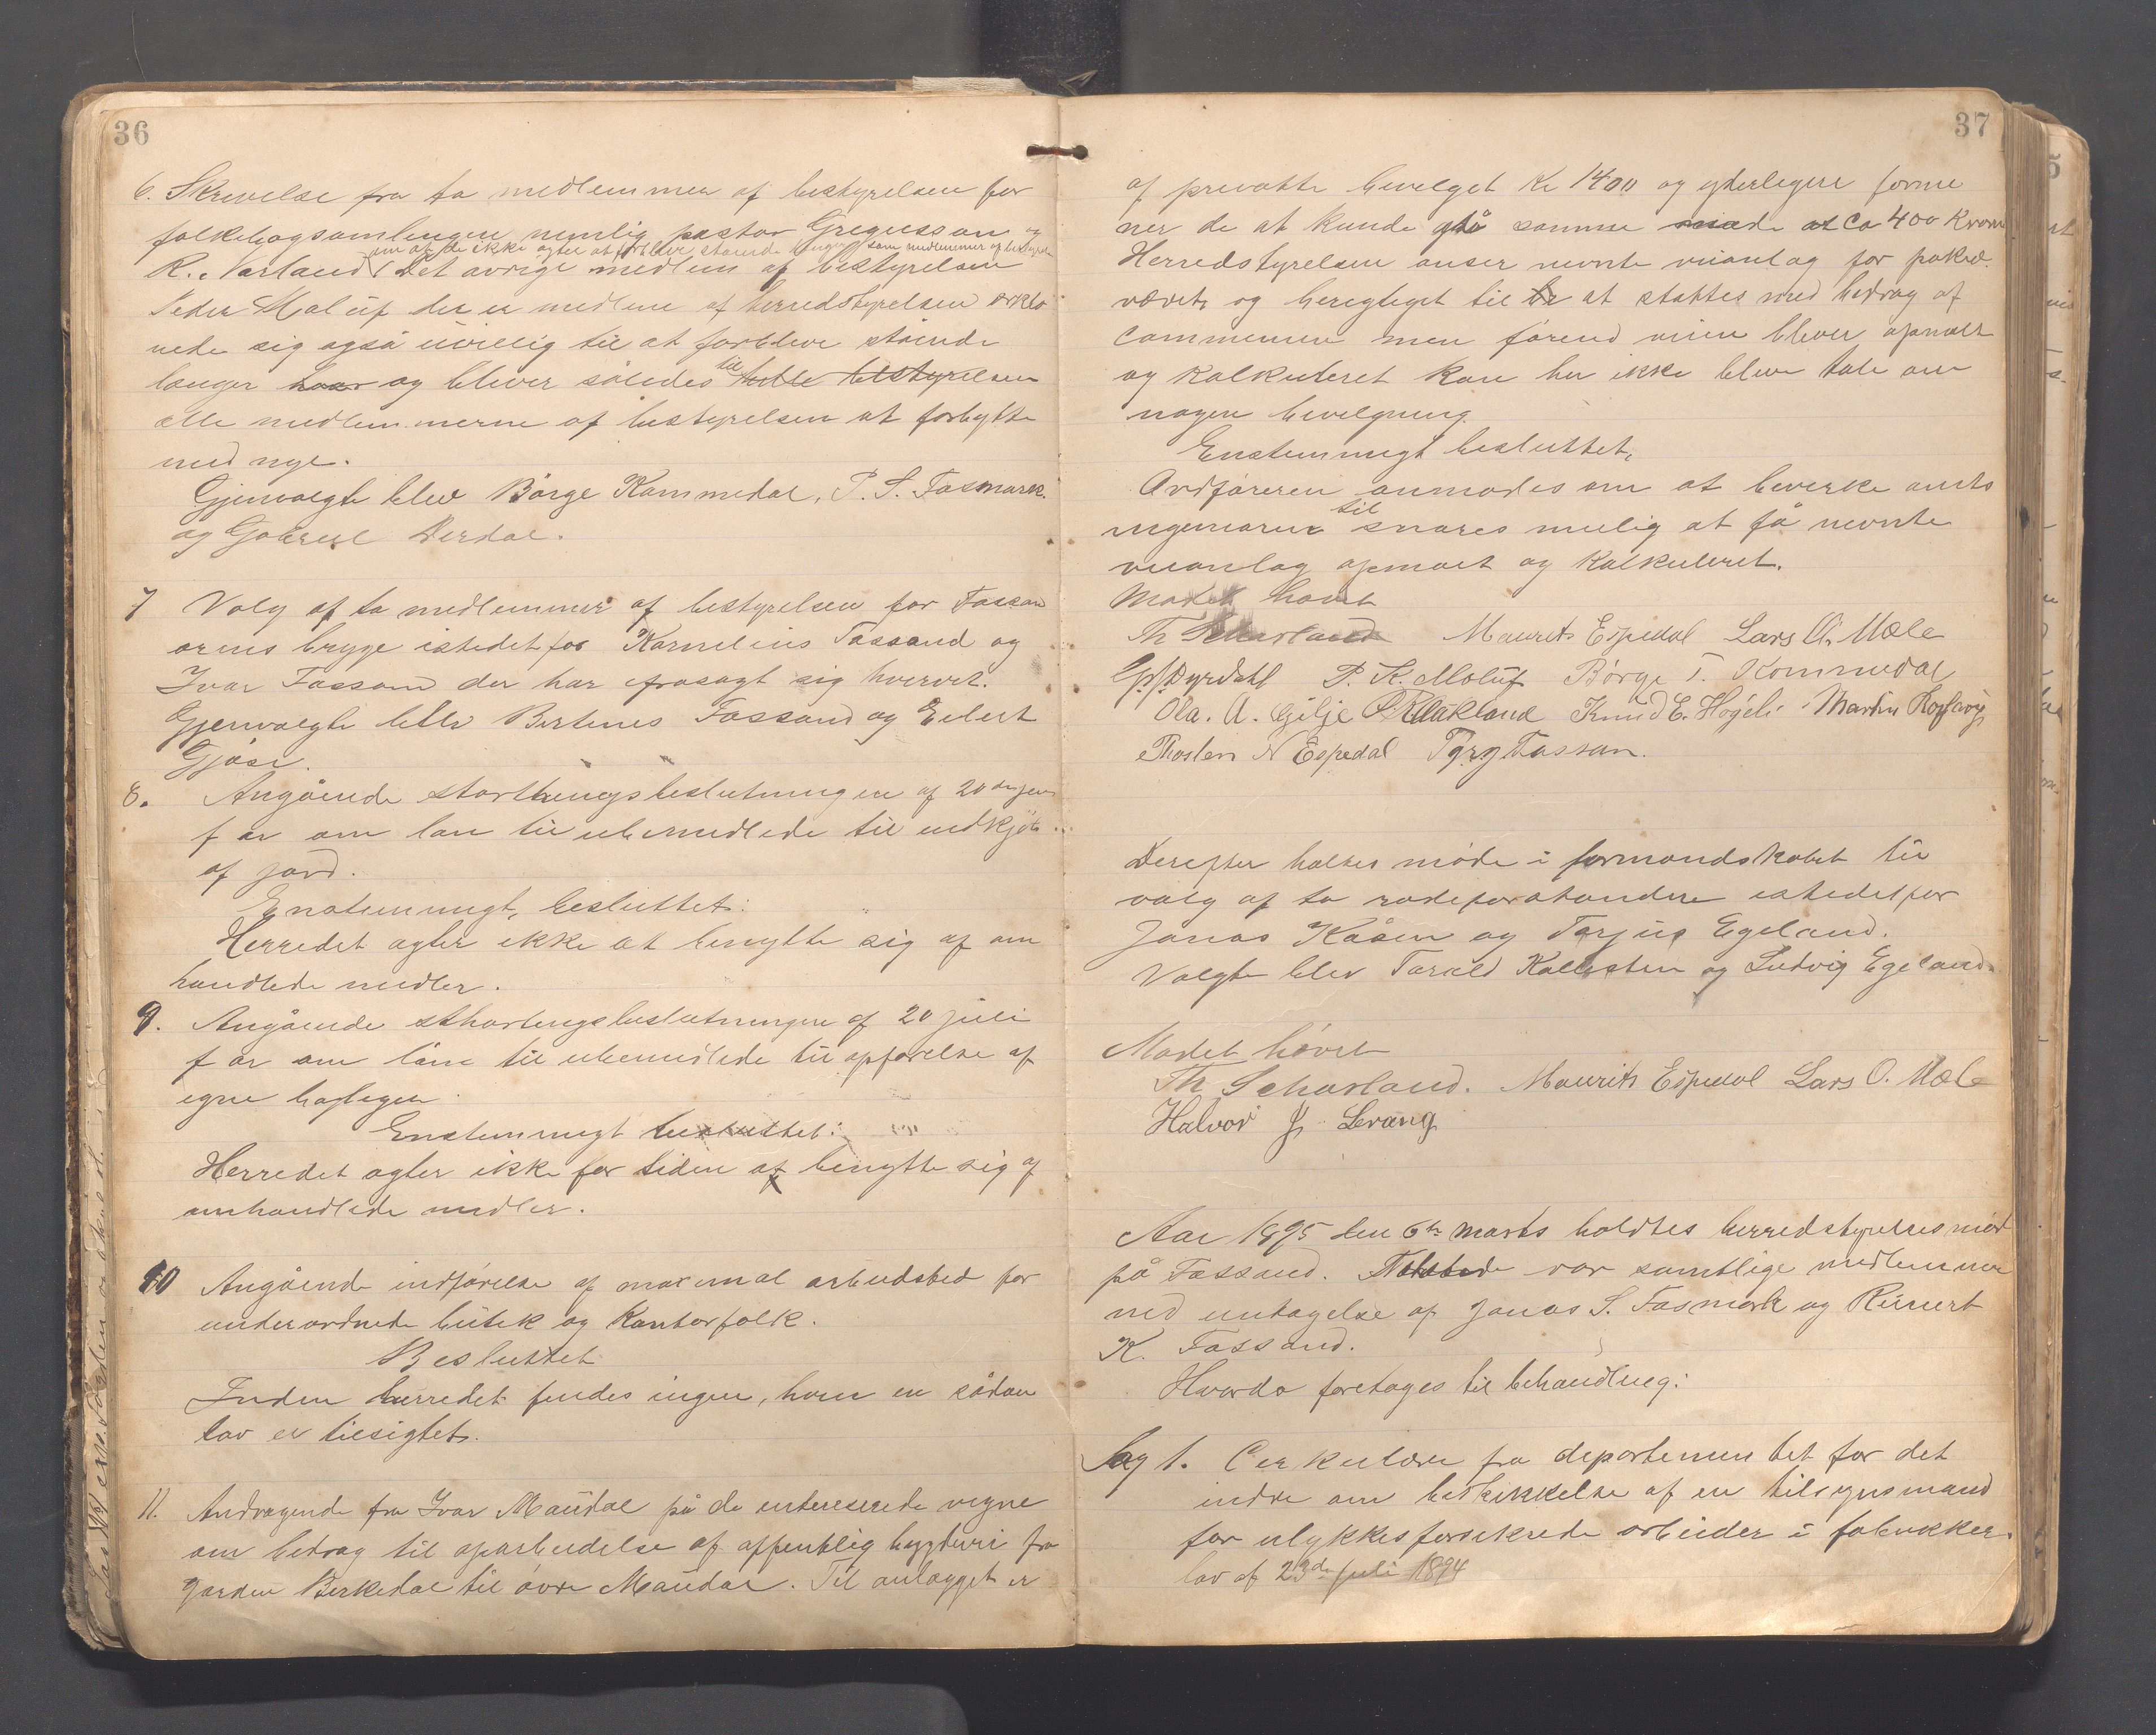 36
6. Skrivelse fra to medlemmer af bestyrelsen for
folkebogsamlingen nemlig pastor Gregussen og
om at de ikke agter at forblive stående længer som medlemmer af bestyrelsen
K. Narland. Det øvrige medlem af bestyrelsen
Peder Maluf der er medlem af herredstyrelsen erklæ
rede sig også uvillig til at forblive stående
længer og bliver således til hele bestyrelsen
alle medlemmerne af bestyrelsen at forbytte
med nye.
Gjenvalgte blev Børge Kommedal, P. S. Fosmark
og Gabriel Dirdal.
7 Valg af to medlemmer af bestyrelsen for Fossan
ørens brygge istedetfor Kornelius Fossand og
Ivar Fossand der har frasagt sig hvervet.
Gjenvalgte blev Bertinus Fossand og Eilert
Gjøse.
8. Angående storthingsbeslutningen af 20de juni
f år om lån til ubemidlede til indkjøb
af jord.
Enstemmigt, besluttet:
Herredet agter ikke at benytte sig af om
handlede midler.
9. Angående sthortingsbeslutningen af 20 juli
f år om låne til ubemidlede til opførelse af
egne boliger.
Enstemmigt besluttet:
Herredet agter ikke for tiden at benytte sig af
omhandlede midler.
10 Angående indførelse af maximal arbeidstid for
underordnede butik og Kontorfolk.
Besluttet
Inden herredet findes ingen, hvem en sådan
lov er tilsigtet.
11. Andragende fra Ivar Maudal på de interesserede vegne
om bidrag til oparbeidelse af offentlig bygdevei fra
garden Birkedal til øvre Maudal. Til anlægget er
37
af private bevilget Kr 1400 og yderligere forme
ner de at kunde gå samme made at Ca 400 Kroner
Herredstyrelsen anser nevnte veianlæg for påkræ
vævet og beregtiget til at støttes med bidrag af
communen men førend veien bliver opmålt
og kalkuleret kan her ikke blive tale om
nogen bevilgning.
Enstemmigt besluttet,
Ordføreren anmodes om at bevirke amts
ingeniøren til snarest mulig at få nevnte
veianlæg opmålt og kalkuleret.
Mødet hævet
Th Scharland Maurits Espedal Lars O. Mæle
G. Dyrdahl P. K. Maluf Børge T. Kommedal
Ola. A. Gilje O R Oakland Knud E. Høgeli Martin
Thosten N Espedal Tørg Fossan.
Derefter holtes møde i formandskabet til
valg af to rodeforstandere istedetfor
Jonas Kåsen og Torjus Egeland.
Valgte blev Torald Kallesten og Ludvig Egeland.
Mødet hævet
Th Scharland. Maurits Espedal Lars O. Mæle
Halvor J. Levang
Aar 1895 den 6te marts holdtes herredstyrelsesmød
på Fossand. Tilstede var samtlige medlemmer
med undtagelse af Jonas S. Fosmark og Reinert
K. Fossand.
Hvorda foretages til behandling:
Sag 1. Cirkulære fra departementet for det
indre om beskikkelse af en tilsynsmand
for ulykkesforsikrede arbeider i fabrikker.
lov af 23de juli 1894